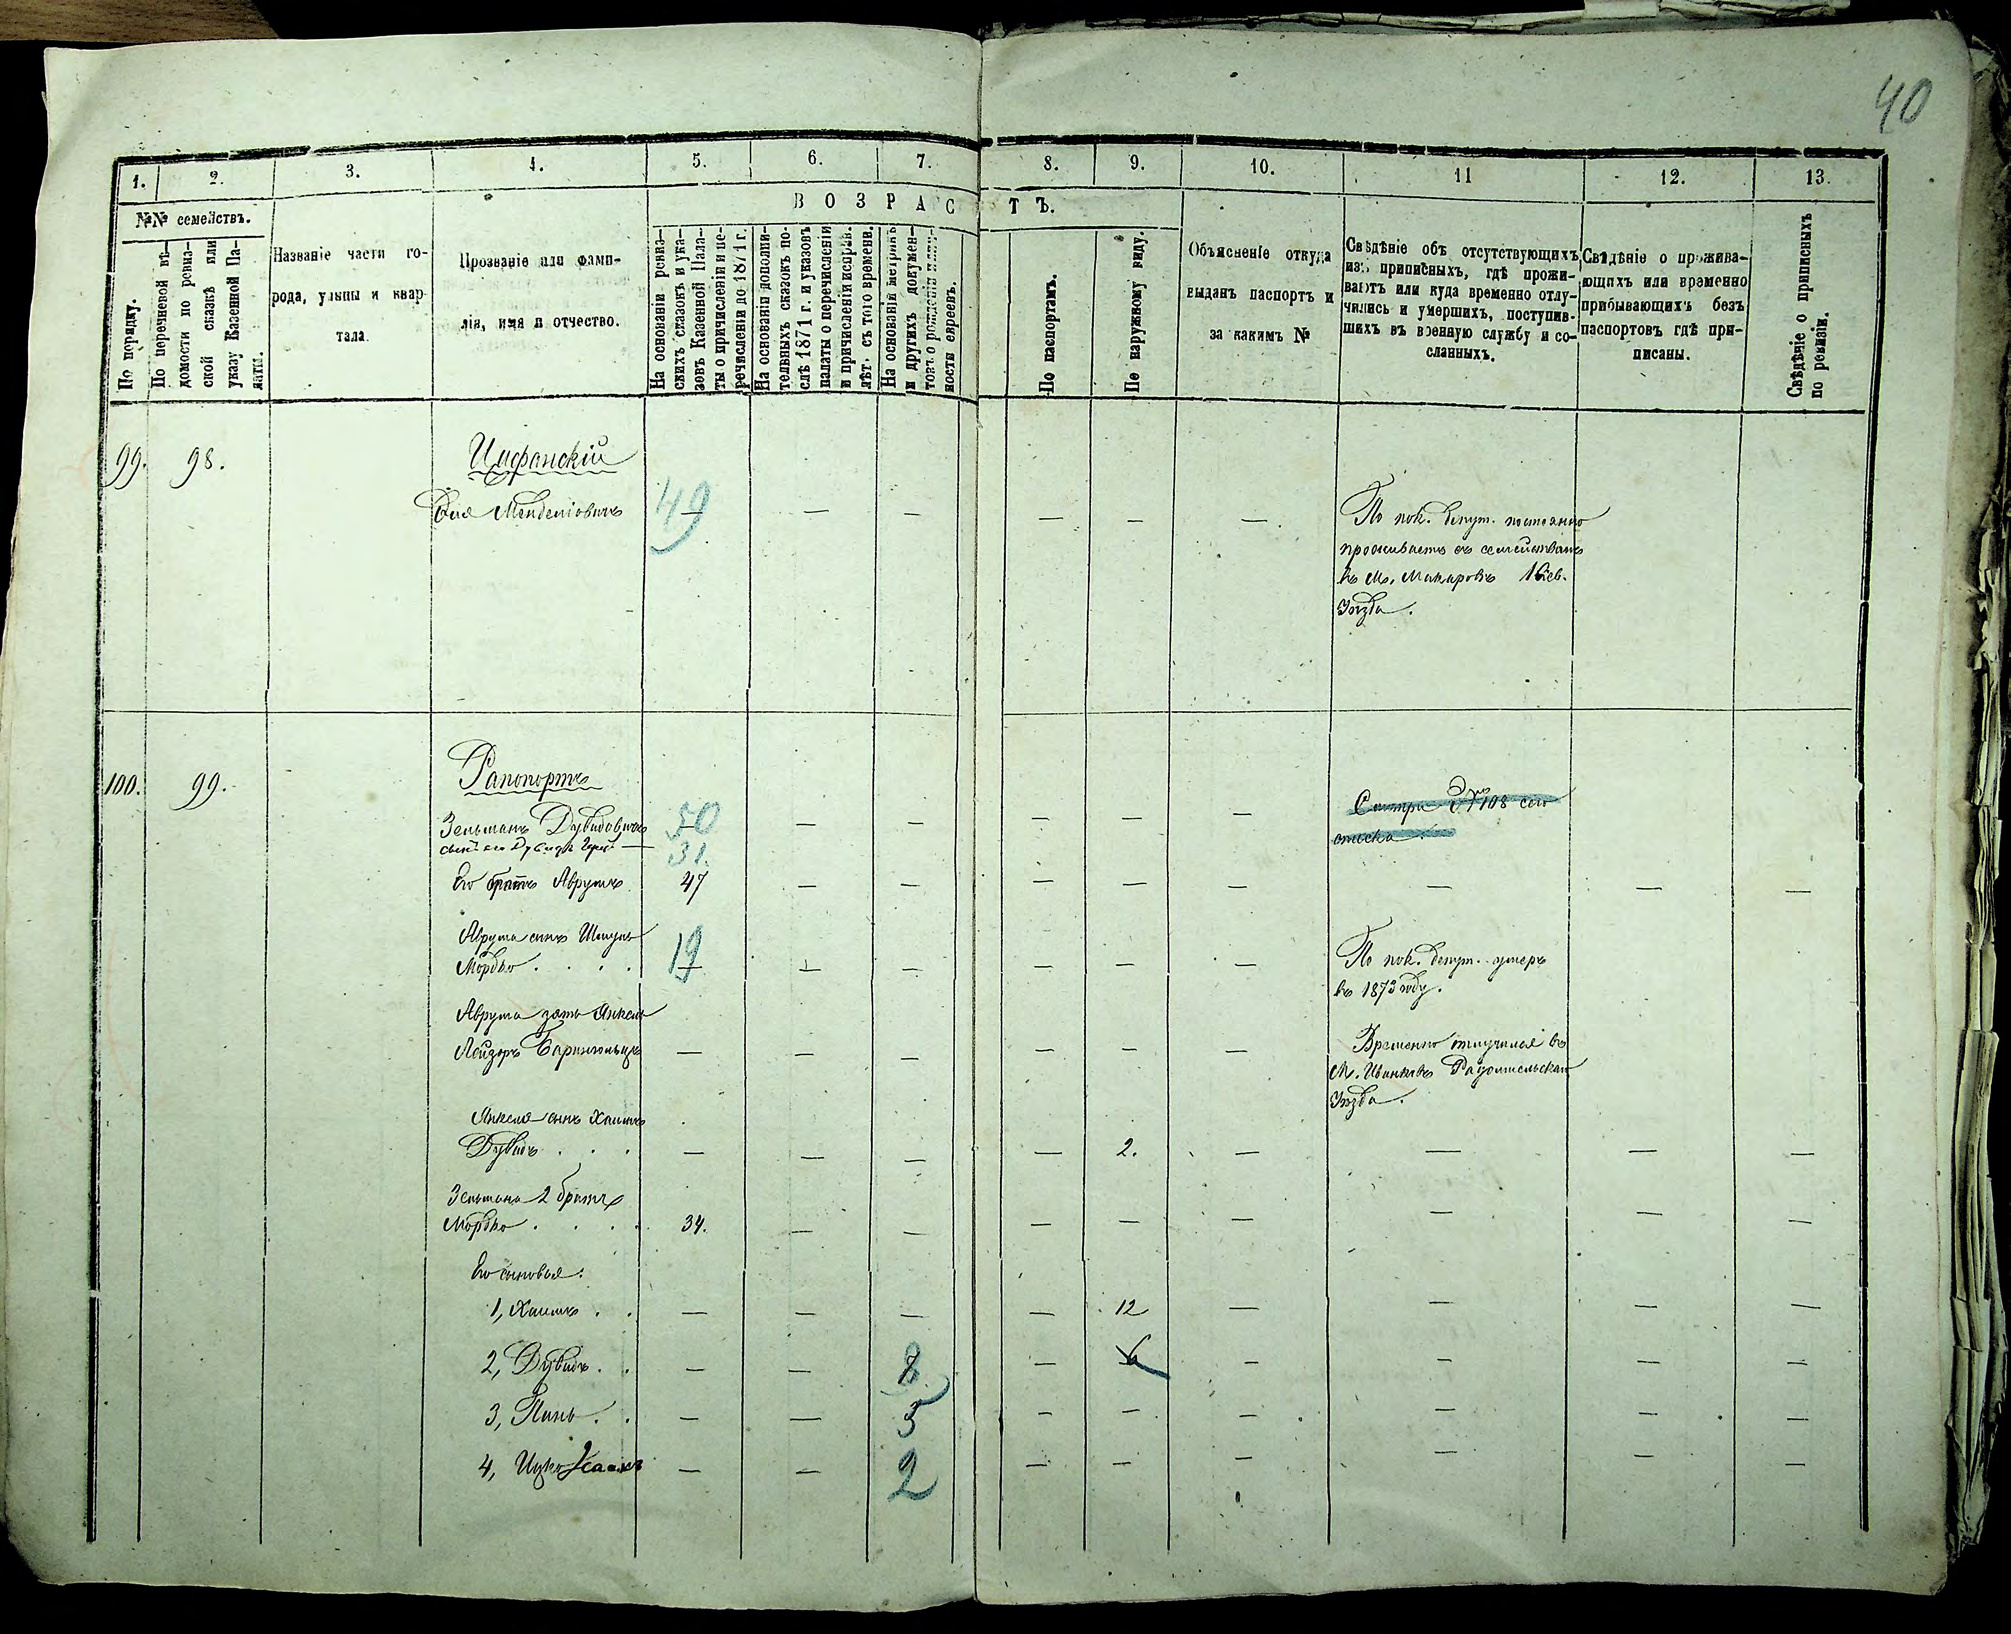 40
1. 2. 3. 4. 5. 6. 7. 8. 9. 10. 11 12. 13.
№№ семействъ.
По порядку.
По перечневой вѣ-
домости по ревиз-
ской сказкѣ или
указу Казенной Па-
латы.
Названіе части го-
рода, улицы и квар-
тала.
Прозваніе или фами-
лія, имя и отчество.
ВОЗРАСТЪ.
На основаніи реви-
скихъ сказокъ и ука-
зовъ Казенной Пала-
ты о причисленіи и пе-
речисленіи до 1871 г.
На основаніи дополни-
тельныхъ сказокъ по-
слѣ 1871 г. и указовъ
палаты о перечисленіи
и причисленіи исправ.
лѣт. съ того времени.
На основаніи метрикъ
и другихъ докумен-
товъ о рожденіи
ности евреевъ.
По паспортамъ.
По наружному виду.
Объясненіе откуда
выданъ паспортъ и
за какимъ №
Свѣдѣніе объ отсутствующихъ
изъ приписныхъ, гдѣ прожи-
ваютъ или куда временно отлу-
чились и умершихъ, поступив-
шихъ въ военную службу и со-
сланныхъ.
Свѣдѣніе о прожива-
ющихъ или временно
прибывающихъ безъ
паспортовъ гдѣ при-
писаны.
Свѣдѣніе о приписныхъ
по ревизіи.
99. 98. Цифанскій
Мендельовичъ 49 — — — — —
По пок. депут. постоянно
проживаетъ съ семействомъ
въ м. Макаровъ Кіев.
Уѣзда.
100. 99. Рапопортъ
Зельманъ Дувидовичъ 50 — — — — —
Смотри № 108 сего
списка
сынъ его Дувидъ 31.
Его братъ Аврумъ 47 — — — — — — — —
Аврума сынъ Шмуль
Мордко . . . . 19 — — — — —
По пок. депут. умеръ
въ 1873 году.
Аврума зять Янкель
Лейзоръ — — — — — —
Временно отлучился въ
м. Иванковъ Радомысльскаго
Уѣзда.
Янкеля сынъ Хаимъ
Дувидъ . . . — — — — 2. — — — —
Зельмана 2 братъ
Мордко . . . . 34. — — — — — — — —
Его сыновья:
1, Хаимъ . . — — — — 12 — — — —
2, Дувидъ . . — — 8 — 6 — — — —
3, Пинь . . — — 5 — — — — — —
4, Ицко Исаакъ — — 2 — — — — — —